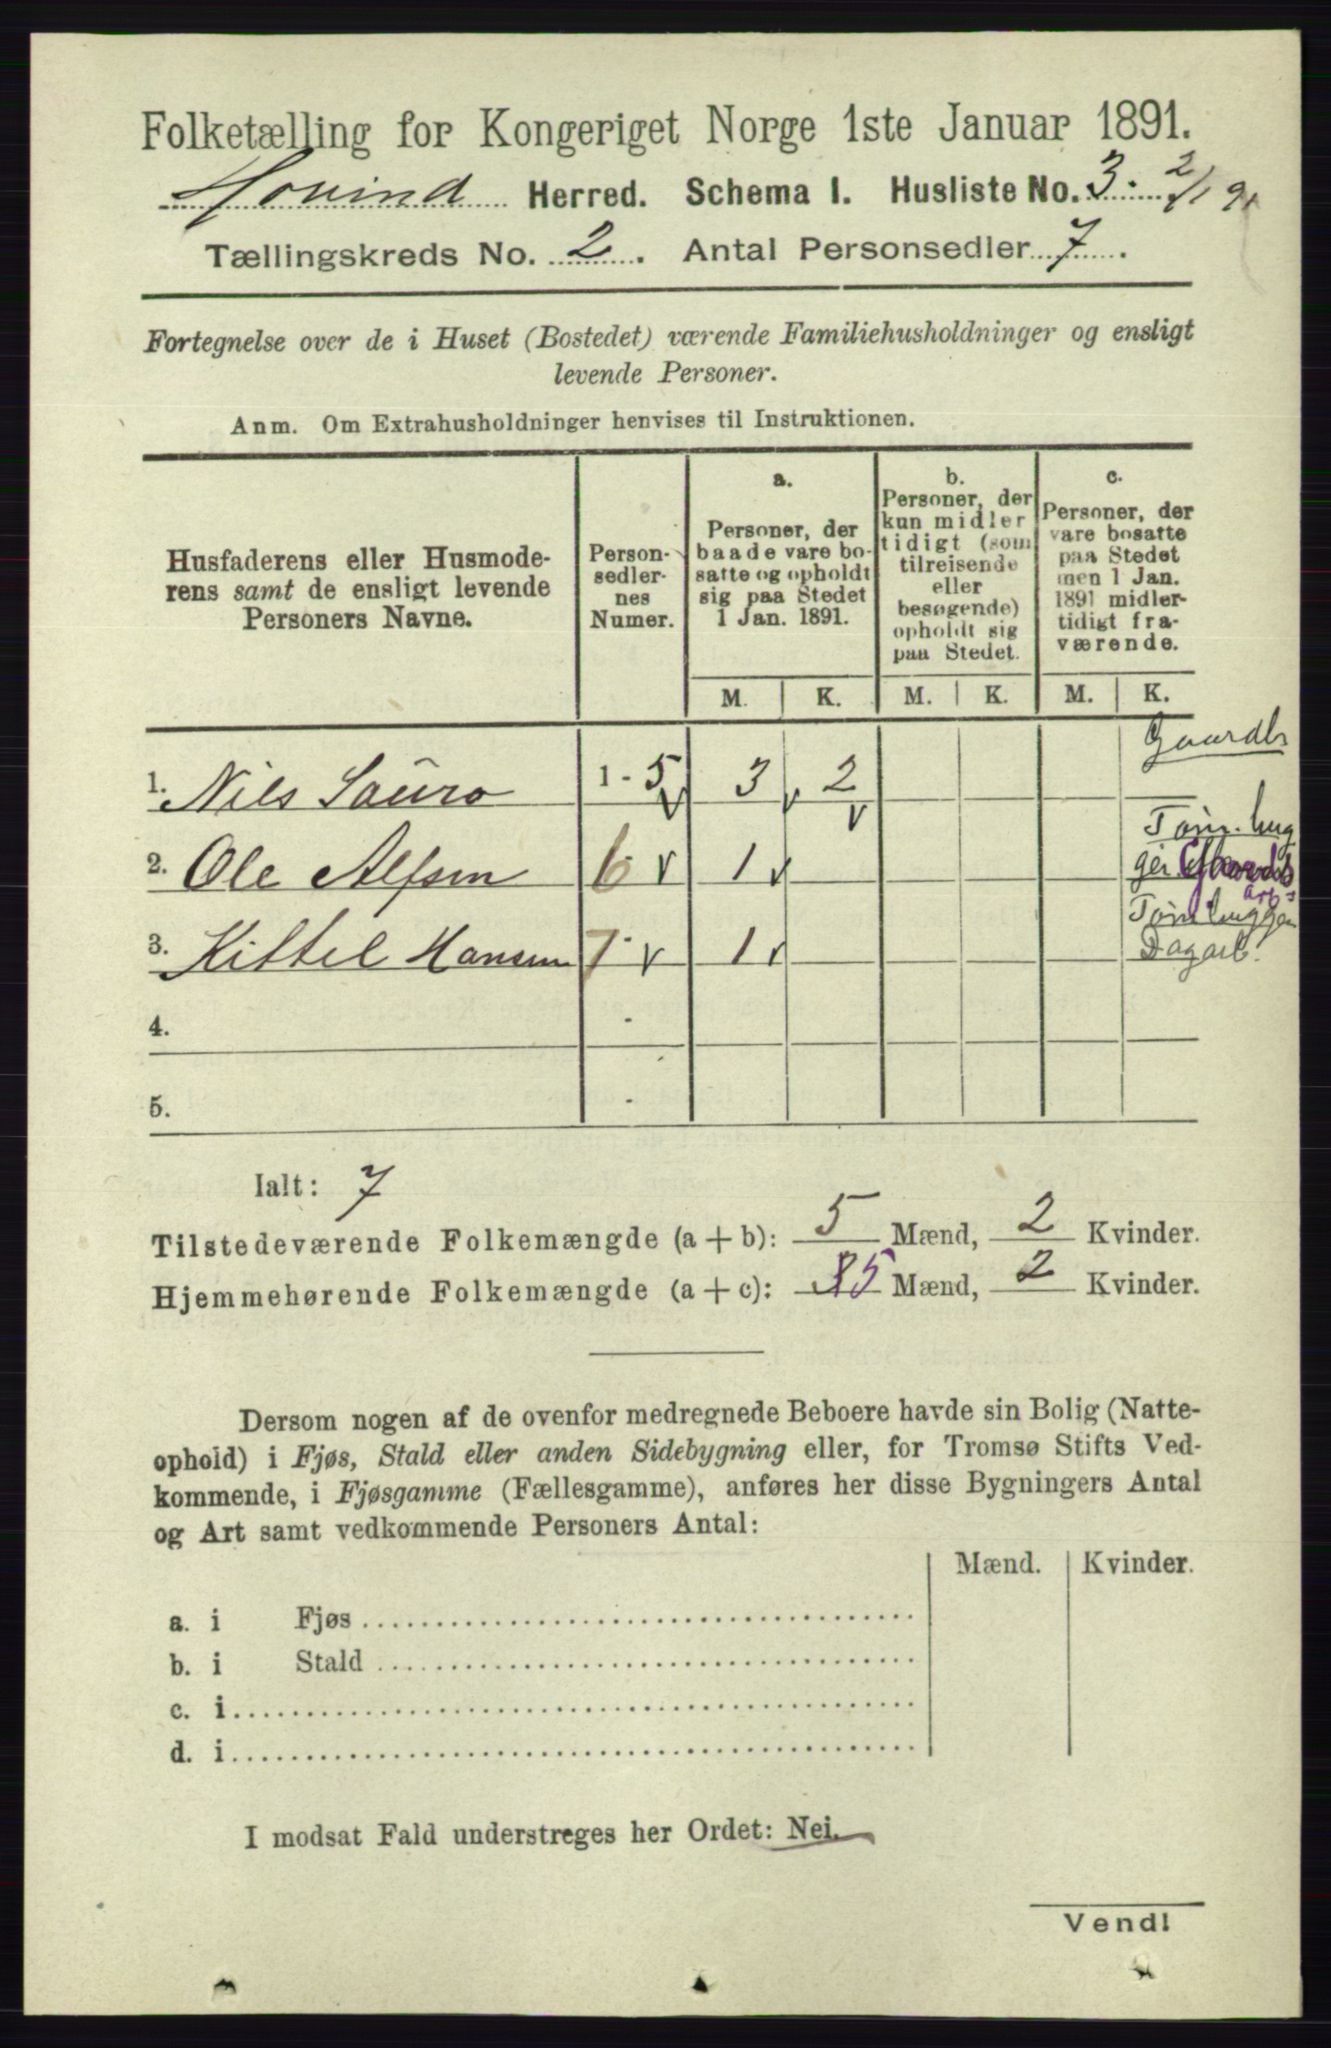 Folketælling for Kongeriget Norge 1ste Januar 1891.
Hovind Herred. Schema I. Husliste No. 3. 2/1 91
Tællingskreds No. 2. Antal Personsedler 7.
Fortegnelse over de i Huset (Bostedet) værende Familiehusholdninger og ensligt
levende Personer.
Anm. Om Extrahusholdninger henvises til Instruktionen.
Husfaderens eller Husmode-
rens samt de ensligt levende
Personers Navne.
Person-
sedler-
nes
Numer.
a.
Personer, der
baade vare bo-
satte og opholdt
sig paa Stedet
1 Jan. 1891.
b.
Personer, der
kun midler
tidigt (som
tilreisende
eller
besøgende)
opholdt sig
paa Stedet.
c.
Personer, der
vare bosatte
paa Stedet
men 1 Jan.
1891 midler-
tidigt fra-
værende.
M. K. M. K. M. K.
Gaardbr
1. Nils Sauro 1 - 5 3 2
Tøm. hug
2. Ole Alfsen 6 1
ger
Tømhugger
3. Kittel Hansen 7 1
Dagarb.
4. -
5. -
Ialt: 7
Tilstedeværende Folkemængde (a + b): 5 Mænd, 2 Kvinder.
Hjemmehørende Folkemængde (a + c): 5 Mænd, 2 Kvinder.
Dersom nogen af de ovenfor medregnede Beboere havde sin Bolig (Natte-
ophold) i Fjøs, Stald eller anden Sidebygning eller, for Tromsø Stifts Ved-
kommende, i Fjøsgamme (Fællesgamme), anføres her disse Bygningers Antal
og Art samt vedkommende Personers Antal:
Mænd. Kvinder.
a. i Fjøs
b. i Stald
c. i
d. i
I modsat Fald understreges her Ordet: Nei.
Vend!